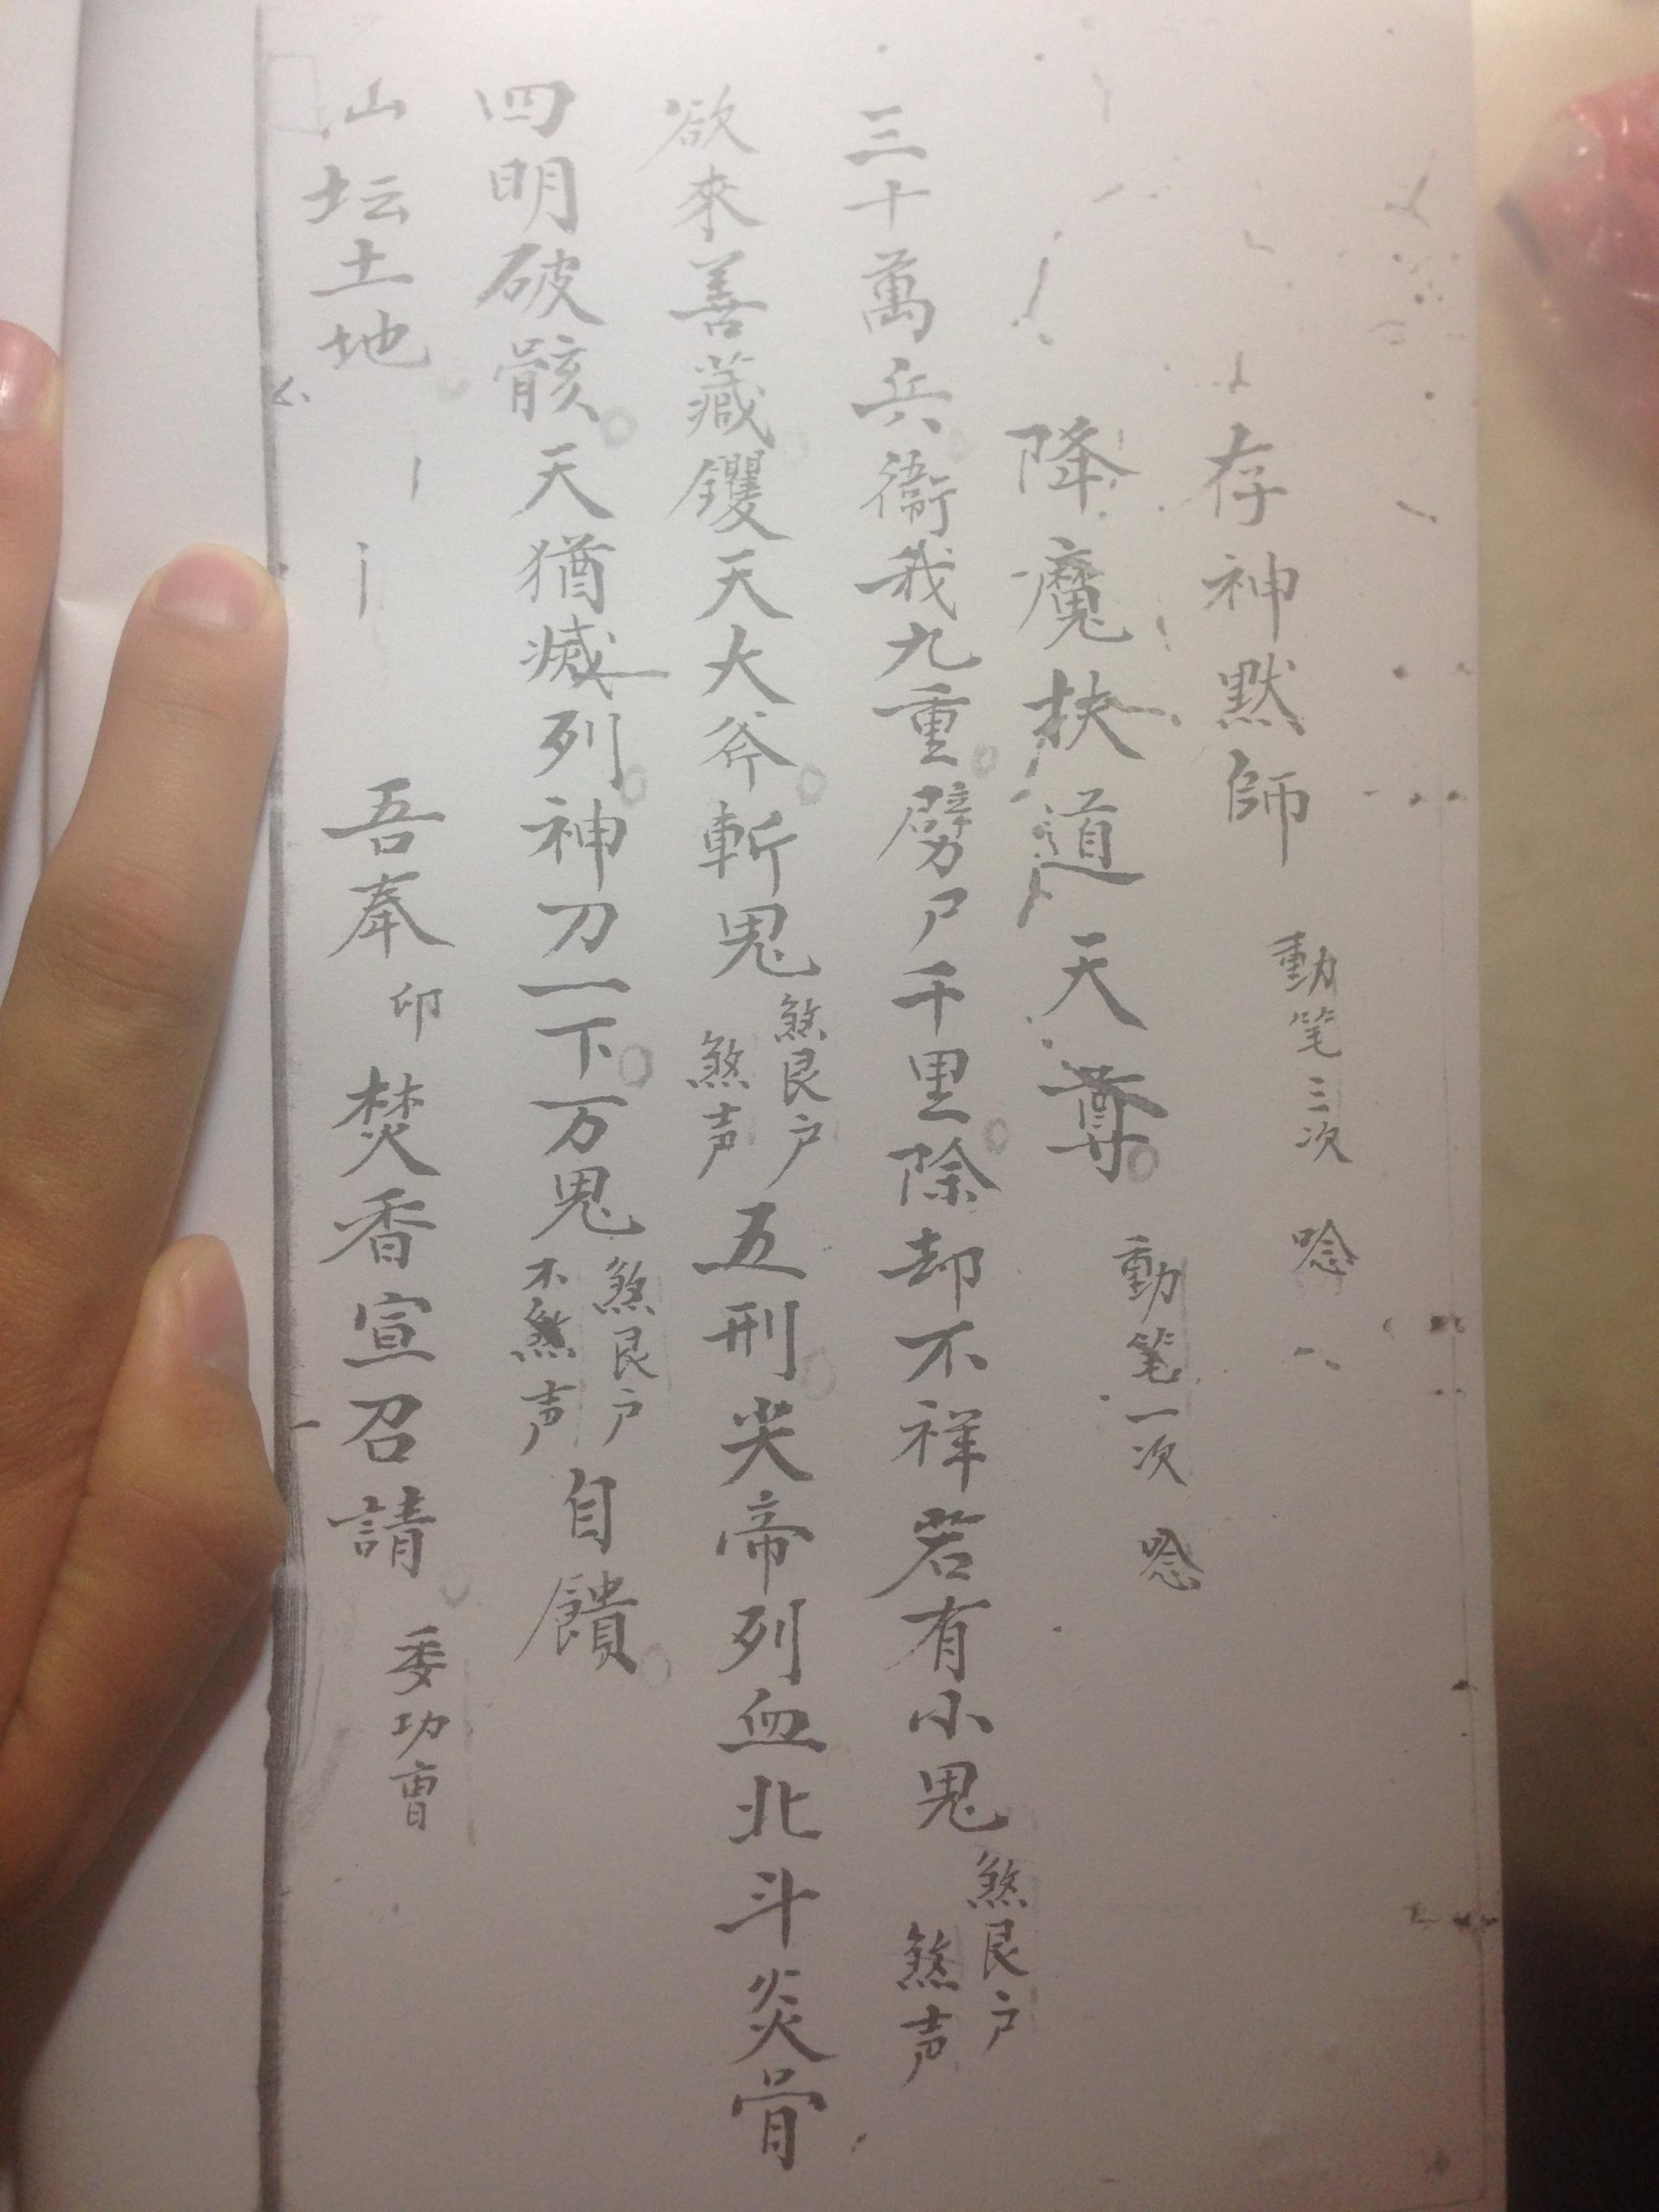 存神默師 動笔三次 唸
降魔扶道天尊 動笔一次 唸
三十萬兵衛我九重劈尸千里除却不祥若有小鬼 煞艮户 煞声
欲來善藏钁天大斧斬鬼 煞艮户 煞声 五刑炎帝列血北斗炎骨
四明破骸天猶滅列神刀一下万鬼 煞艮户 不煞声 自饋
山坛土地 吾奉 印 焚香宣召請 委功曹